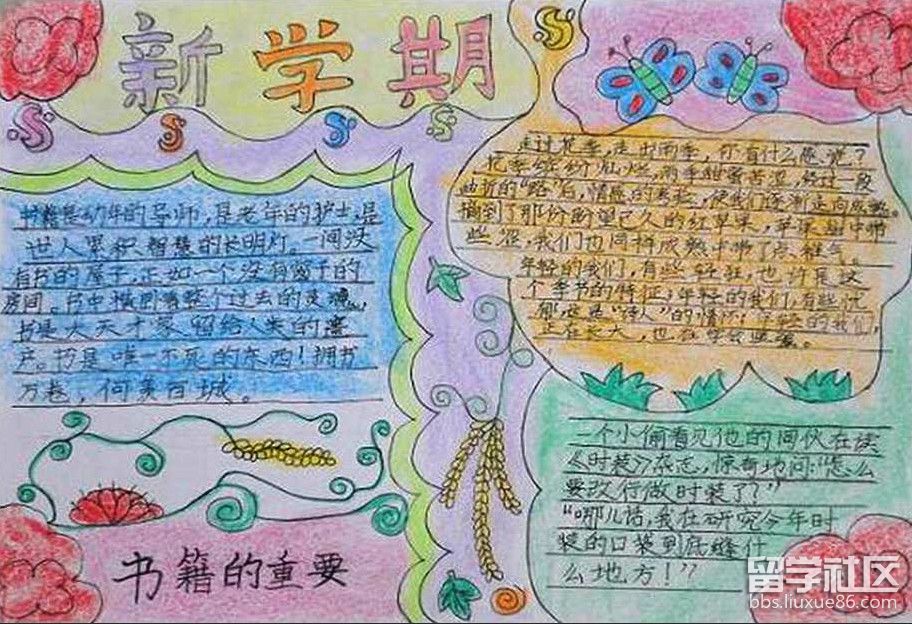 新学期
书籍是幼年的导师，是老年的护士，是
世人累积智慧的长明灯。一间没
有书的屋子，正如一个没有窗子的
房间。书中横卧着整个过去的灵魂。
书是大天才家留给人类的遗
产。书是唯一不死的东西！拥书
万卷，何美百城。
书籍的重要
走过花季，走出雨季，你有什么感觉？
花季缤纷灿烂，雨季甜蜜苦涩，经过一段
曲折的“路”后，情感的考验，使我们逐渐走向成熟。
摘到了那份盼望已久的红苹果，苹果甜中带
些涩，我们也同样成熟中带了点稚气。
年轻的我们，有些轻狂，也许是这
个季节的特征；年轻的我们，有些忧
郁，这是“诗人”的情怀；年轻的我们，
正在长大，也在学会
一个小偷看见他的同伙在读
时装杂志，惊奇地问“怎么
要改行做时装了？”
“哪儿话，我在研究今年时
装的口袋到底缝什
么地方！”
留学社区
bbs.liuxue86.com